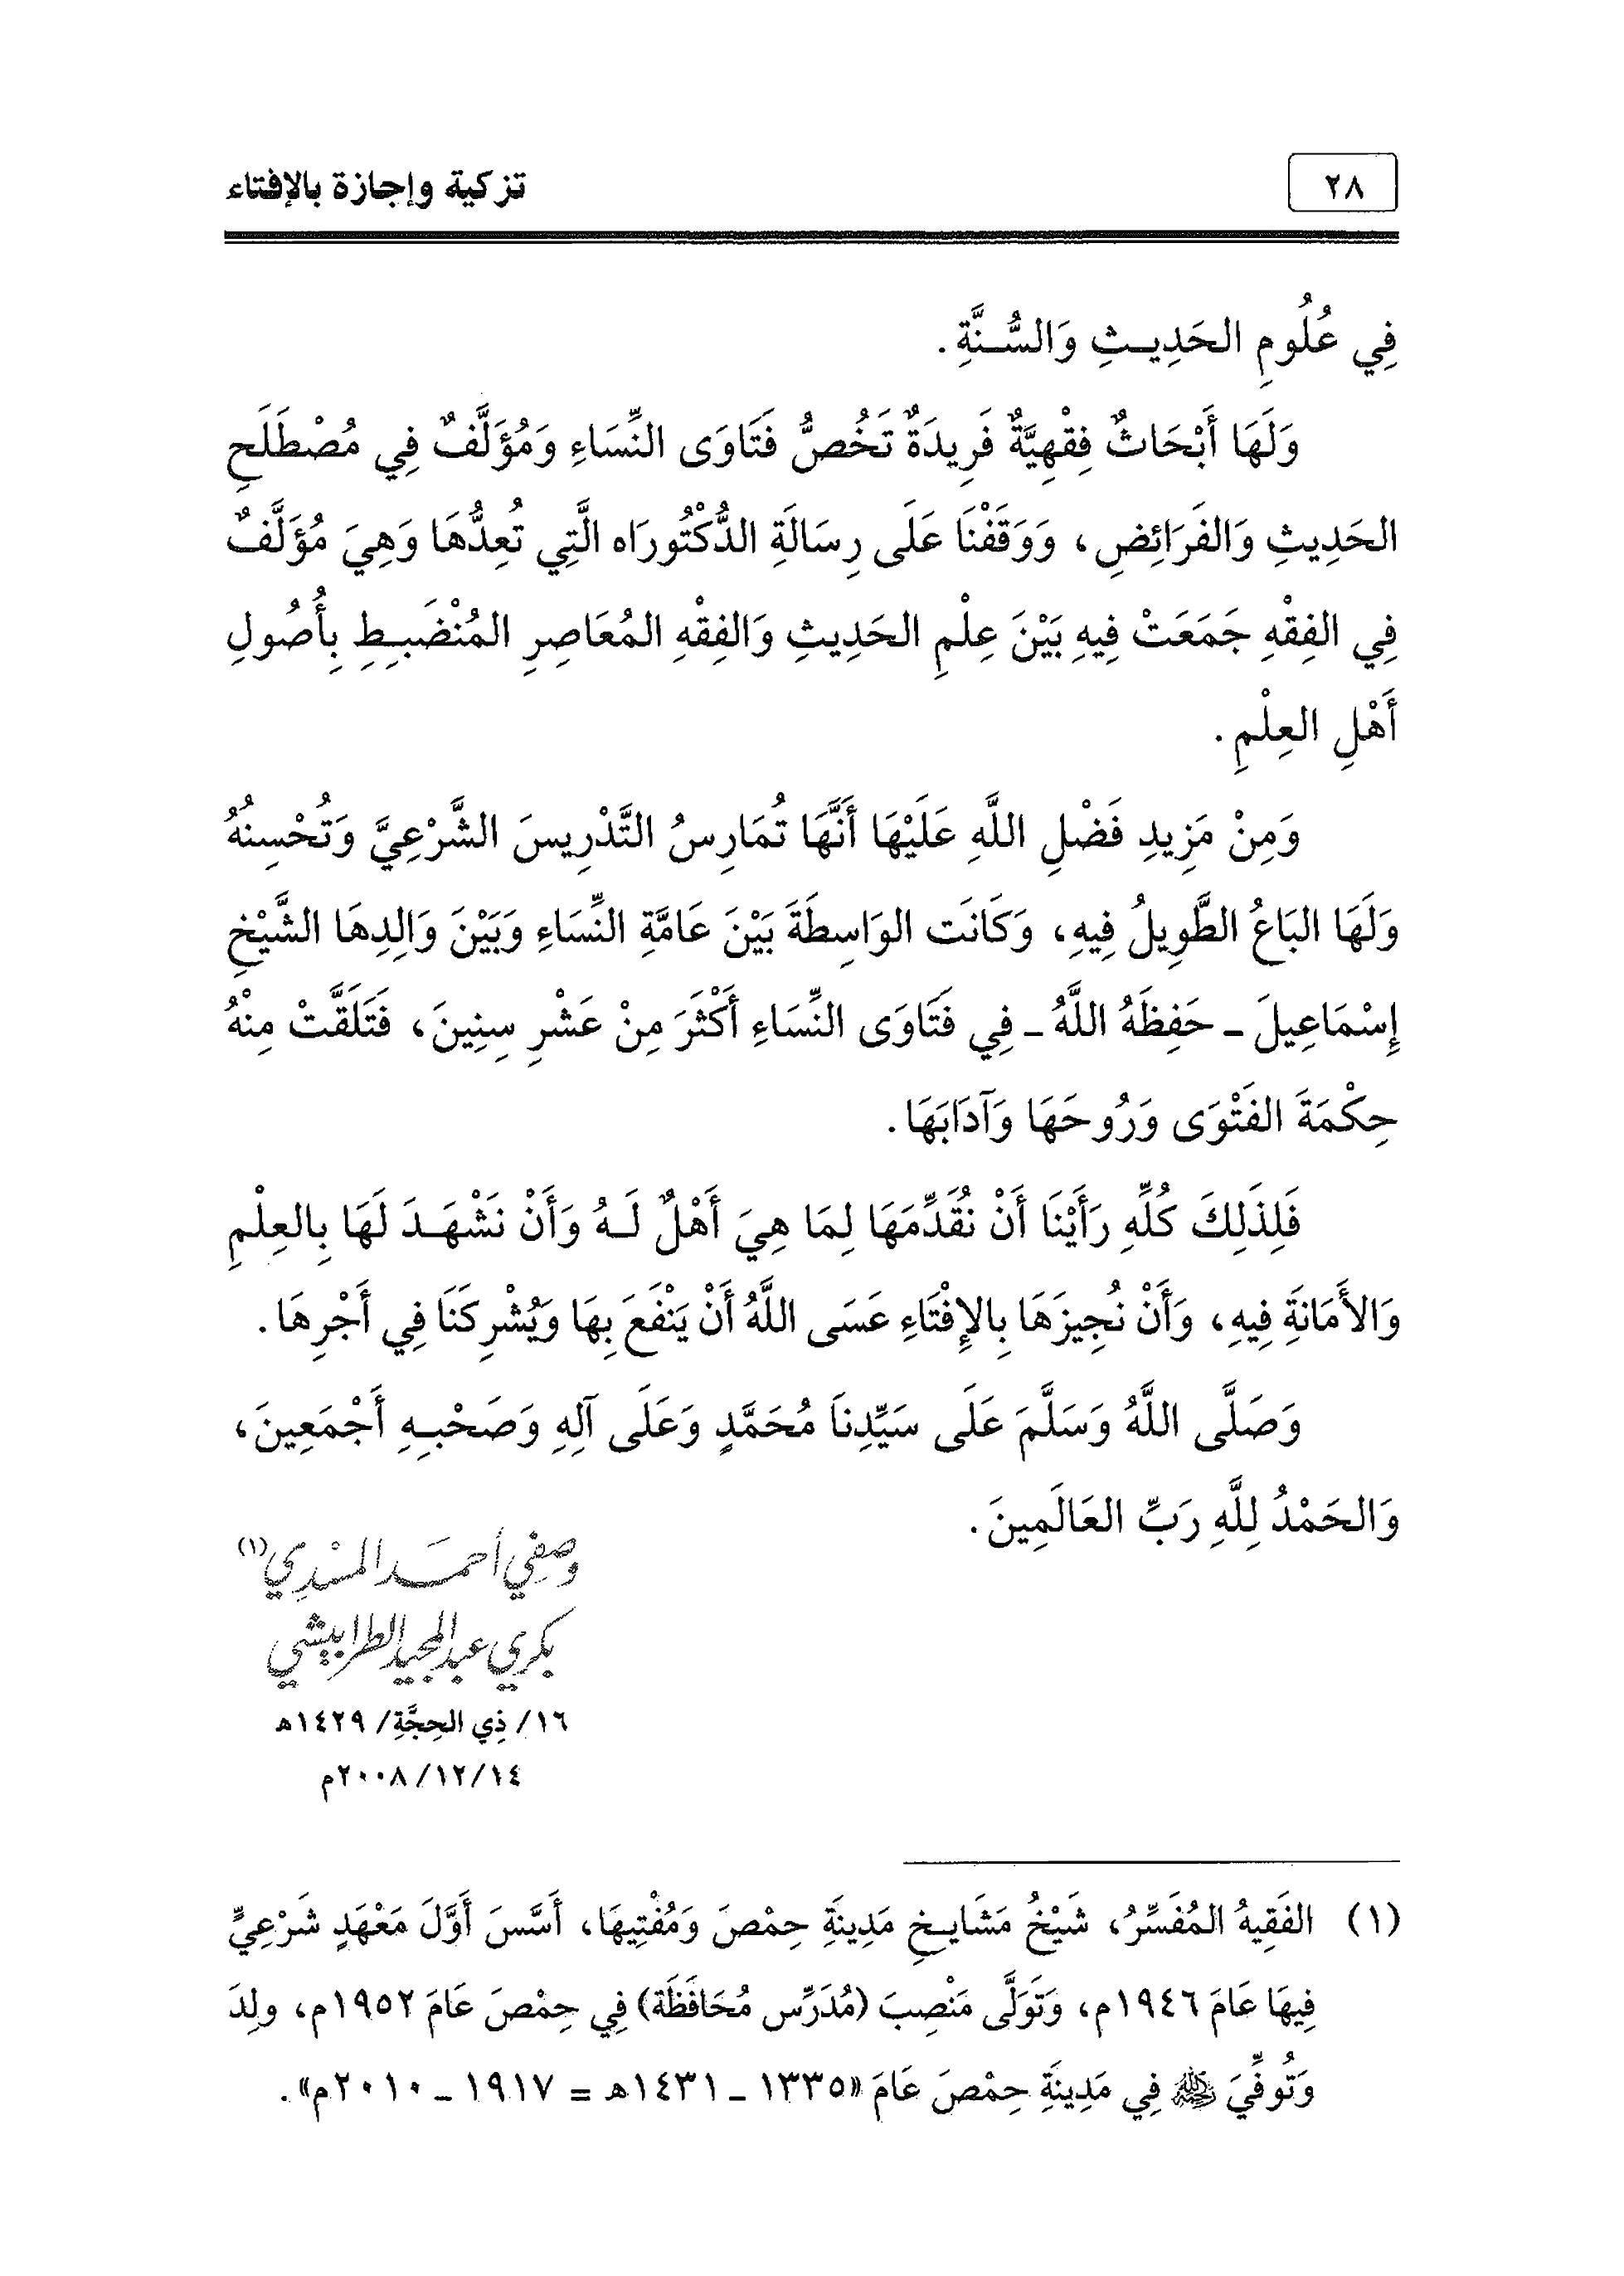 ٢٨
تزكية وإجازة بالإفتاء
فِي عُلُومِ الحَدِيثِ وَالسُّنَّةِ.
وَلَهَا أَبْحَاثٌ فِقْهِيَّةٌ فَرِيدَةٌ تَخُصُّ فَتَاوَى النِّسَاءِ وَمُؤَلَّفٌ فِي مُصْطَلَحِ
الحَدِيثِ وَالفَرَائِضِ، وَوَقَفْنَا عَلَى رِسَالَةِ الدُّكْتُورَاه الَّتِي تُعِدُّهَا وَهِيَ مُؤَلَّفٌ
فِي الفِقْهِ جَمَعَتْ فِيهِ بَيْنَ عِلْمِ الحَدِيثِ وَالفِقْهِ المُعَاصِرِ المُنْضَبِطِ بِأُصُولِ
أَهْلِ العِلْمِ.
وَمِنْ مَزِيدِ فَضْلِ اللَّهِ عَلَيْهَا أَنَّهَا تُمَارِسُ التَّدْرِيسَ الشَّرْعِيَّ وَتُحْسِنُهُ
وَلَهَا البَاعُ الطَّوِيلُ فِيهِ، وَكَانَت الوَاسِطَةَ بَيْنَ عَامَّةِ النِّسَاءِ وَبَيْنَ وَالِدِهَا الشَّيْخِ
إِسْمَاعِيلَ ـ حَفِظَهُ اللَّهُ ـ فِي فَتَاوَى النِّسَاءِ أَكْثَرَ مِنْ عَشْرِ سِنِينَ، فَتَلَقَّتْ مِنْهُ
حِكْمَةَ الفَتْوَى وَرُوحَهَا وَآدَابَهَا.
فَلِذَلِكَ كُلِّهِ رَأَيْنَا أَنْ نُقَدِّمَهَا لِمَا هِيَ أَهْلٌ لَهُ وَأَنْ نَشْهَدَ لَهَا بِالعِلْمِ
وَالأَمَانَةِ فِيهِ، وَأَنْ نُجِيزَهَا بِالإِفْتَاءِ عَسَى اللَّهُ أَنْ يَنْفَعَ بِهَا وَيُشْرِكَنَا فِي أَجْرِهَا.
وَصَلَّى اللَّهُ وَسَلَّمَ عَلَى سَيِّدِنَا مُحَمَّدٍ وَعَلَى آلِهِ وَصَحْبِهِ أَجْمَعِينَ،
وَالحَمْدُ لِلَّهِ رَبِّ العَالَمِينَ.
وصفي أحمد المسْدي(١)
بكري عبد المجيد الطرابيشي
١٦/ ذِي الحِجَّةِ/ ١٤٢٩هـ
١٤/١٢/٢٠٠٨م
(١) الفَقِيهُ المُفَسِّرُ، شَيْخُ مَشَايِخِ مَدِينَةِ حِمْصَ وَمُفْتِيهَا، أَسَّسَ أَوَّلَ مَعْهَدٍ شَرْعِيٍّ
فِيهَا عَامَ ١٩٤٦م، وَتَوَلَّى مَنْصِبَ (مُدَرِّس مُحَافَظَة) فِي حِمْصَ عَامَ ١٩٥٢م، ولِدَ
وَتُوفِّيَ رحمه الله فِي مَدِينَةِ حِمْصَ عَامَ «١٣٣٥ ـ ١٤٣١هـ = ١٩١٧ ـ ٢٠١٠م».